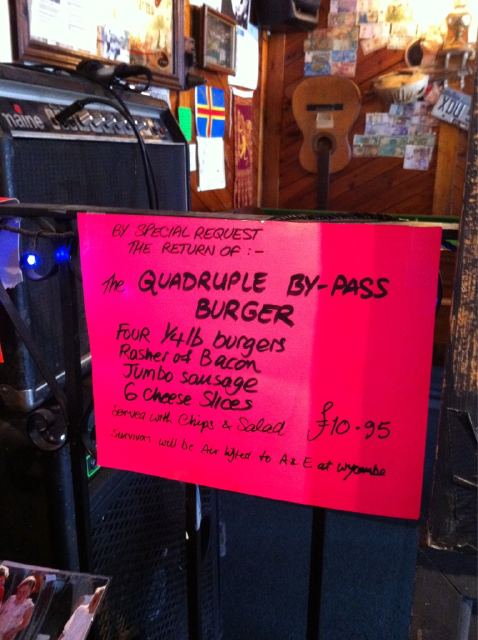 BY SPECIAL REQUEST
THE RETURN OF :-
The QUADRUPLE BY-PASS
BURGER
FOUR 1/4lb burgers
Rasher of Bacon
Jumbo sausage
6 Cheese Slices
Served with Chips & Salad £10.95
Survivors will be Air lifted to A & E at Wycombe